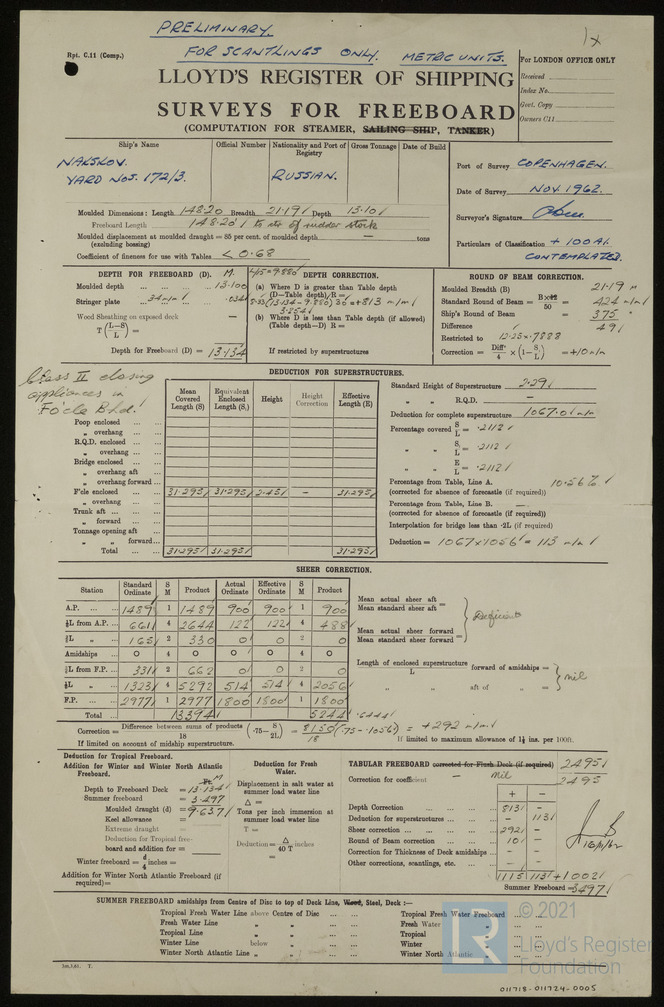 PRELIMINARY.
FOR SCANTLINGS ONLY. METRIC UNITS.
1x
Rpt. C.11 (Comp.)
For LONDON OFFICE ONLY
Received
Index No.
Govt. Copy
Owners C11
LLOYD'S REGISTER OF SHIPPING
SURVEYS FOR FREEBOARD
(COMPUTATION FOR STEAMER, SAILING SHIP, TANKER)
Ship's Name
Official Number
Nationality and Port of Registry
Gross Tonnage
Date of Build
NAKSKOV.
YARD NOS. 172/3.
RUSSIAN.
Port of Survey COPENHAGEN.
Date of Survey NOV 1962.
Surveyor's Signature
Particulars of Classification + 100 A1.
CONTEMPLATED.
Moulded Dimensions: Length 148.20 Breadth 21.19 Depth 13.10
Freeboard Length 148.20 to of rudder stock
Moulded displacement at moulded draught = 85 per cent. of moulded depth — tons
(excluding bossing)
Coefficient of fineness for use with Tables < 0.68
DEPTH FOR FREEBOARD (D). M.
Moulded depth 13.100
Stringer plate 34 m/m .034
Wood Sheathing on exposed deck —
T(L-S/L) =
Depth for Freeboard (D) = 13.134
L/15 = 9.880 DEPTH CORRECTION.
(a) Where D is greater than Table depth
(D—Table depth) R =
8.33 (13.134 - 9.880) 30 = +813 m/m
3.254
(b) Where D is less than Table depth (if allowed)
(Table depth—D) R =
If restricted by superstructures
ROUND OF BEAM CORRECTION.
Moulded Breadth (B) 21.19 M
Standard Round of Beam = B×12/50 = 424 m/m
Ship's Round of Beam = 375 "
Difference 49
Restricted to 12.25 × .7888
Correction = Diff/4 × (1-S/L) = +10 m/m
Class II closing
appliances in
Fo'cle Bhd.
DEDUCTION FOR SUPERSTRUCTURES.
Mean Covered Length (S)
Equivalent Enclosed Length (S₁)
Height
Height Correction
Effective Length (E)
Poop enclosed
" overhang
R.Q.D. enclosed
" overhang
Bridge enclosed
" overhang aft
" overhang forward
F'cle enclosed 31.295 31.295 2.45 — 31.295
" overhang
Trunk aft
" forward
Tonnage opening aft
" " forward
Total 31.295 31.295 31.295
Standard Height of Superstructure 2.29
" " R.Q.D. —
Deduction for complete superstructure 1067.0 m/m
Percentage covered S/L = .2112
" " S₁/L = .2112
" " E/L = .2112
Percentage from Table, Line A. 10.56%
(corrected for absence of forecastle (if required))
Percentage from Table, Line B. —
(corrected for absence of forecastle (if required))
Interpolation for bridge less than ·2L (if required)
Deduction = 1067 × .1056 = 113 m/m
SHEER CORRECTION.
Station
Standard Ordinate
S M
Product
Actual Ordinate
Effective Ordinate
S M
Product
A.P. 1489 1 1489 900 900 1 900
⅙L from A.P. 661 4 2644 122 122 4 488
⅓L " 165 2 330 0 0 2 0
Amidships 0 4 0 0 0 4 0
⅓L from F.P. 331 2 662 0 0 2 0
⅙L " 1323 4 5292 514 514 4 2056
F.P. 2977 1 2977 1800 1800 1 1800
Total 13394 5244
Mean actual sheer aft =
Mean standard sheer aft
Mean actual sheer forward =
Mean standard sheer forward
Deficient
Length of enclosed superstructure / L forward of amidships =
" " aft of " =
nil
.6444
Correction = Difference between sums of products / 18 (·75- S/2L) = 8150/18 (.75 - .1056) = +292 m/m
If limited on account of midship superstructure.
If limited to maximum allowance of 1½ ins. per 100ft.
Deduction for Tropical Freeboard.
Addition for Winter and Winter North Atlantic Freeboard.
Ft M
Depth to Freeboard Deck = 13.134
Summer freeboard = 3.497
Moulded draught (d) = 9.637
Keel allowance =
Extreme draught =
Deduction for Tropical freeboard and addition for =
Winter freeboard = d/4 inches =
Addition for Winter North Atlantic Freeboard (if required) =
Deduction for Fresh Water.
Displacement in salt water at summer load water line
△ =
Tons per inch immersion at summer load water line
T =
Deduction = △/40 T inches
=
TABULAR FREEBOARD corrected for Flush Deck (if required) 2495
Correction for coefficient — Nil 2495
+ −
Depth Correction 813 —
Deduction for superstructures — 113
Sheer correction 292 —
Round of Beam correction 10 —
Correction for Thickness of Deck amidships —
Other corrections, scantlings, etc. —
1115 113 +1002
Summer Freeboard = 3497
16/11/62
SUMMER FREEBOARD amidships from Centre of Disc to top of Deck Line, Wood, Steel, Deck :—
Tropical Fresh Water Line above Centre of Disc
Fresh Water Line " "
Tropical Line " "
Winter Line below "
Winter North Atlantic Line " "
Tropical Fresh Water Freeboard
Fresh Water "
Tropical "
Winter "
Winter North Atlantic "
1m.5.61. T.
© 2021
LR
Lloyd's Register
Foundation
011718-011724-0005